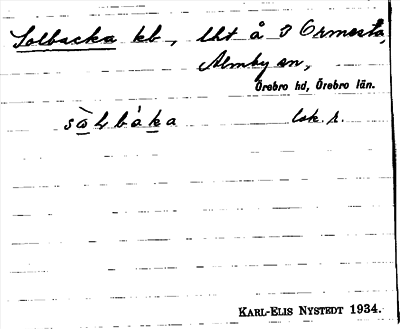 Solbacka kb, lht å Ö Ormesta,
Almby sn,
Örebro hd, Örebro län.
sò̱Lbá̱ka lok. r.
KARL-ELIS NYSTEDT 1934.